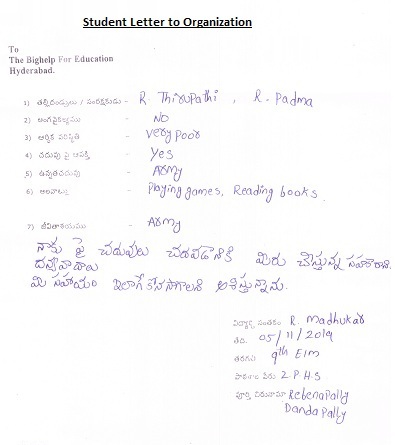 Student Letter to Organization
To
The Bighelp For Education
Hyderabad.
1) తల్లిదండ్రులు / సంరక్షకుడు - R. Thirupathi, R. Padma
2) అంగవైకల్యము - NO
3) ఆర్థిక పరిస్థితి - Very poor
4) చదువు పై ఆసక్తి - Yes
5) ఉన్నతచదువు - Army
6) అలవాట్లు - Playing games, Reading books.
7) జీవితాశయము - Army
నాకు పై చదువులు చదవడానికి మీరు చేస్తున్న సహకారానికి
ధన్యవాదాలు
మీ సహాయం ఇలాగే కొనసాగాలని ఆశిస్తున్నాను.
విద్యార్థి సంతకం R. Madhukar
తేది. 05/11/2019
తరగతి 9th E/M
పాఠశాల పేరు Z.P.H.S
పూర్తి చిరునామా Rebenapally
Dandapally